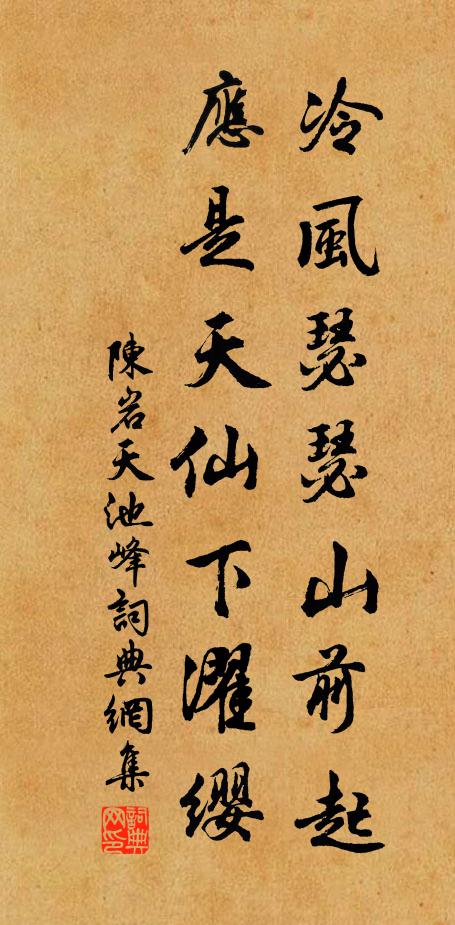 冷風瑟瑟山前起
應是天仙下濯纓
陳岩天池峰詞典網集
詞典网印